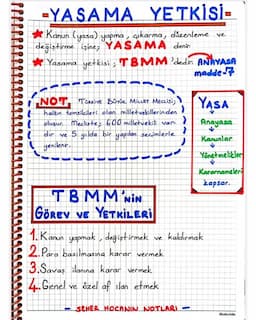 -YASAMA YETKİSİ-
★ Kanun (yasa) yapma, çıkarma, düzenleme ve
değiştirme işine; YASAMA denir
★ Yasama yetkisi; TBMM'dedir ANAYASA
madde-7
NOT, Türkiye Büyük Millet Meclisi;
halkın temsilcileri olan milletvekillerinden
oluşur. Mecliste; 600 milletvekili var-
dır ve 5 yılda bir yapılan seçimlerle
yenilenir.
YASA
↓
→ Anayasa
→ Kanunlar
→ Yönetmelikler
→ Kararnameleri
kapsar.
TBMM'nin
GÖREV VE YETKİLERİ
1. Kanun yapmak, değiştirmek ve kaldırmak
2. Para basılmasına karar vermek
3. Savaş ilanına karar vermek
4. Genel ve özel af ilan etmek
- SEHER HOCANIN NOTLARI -